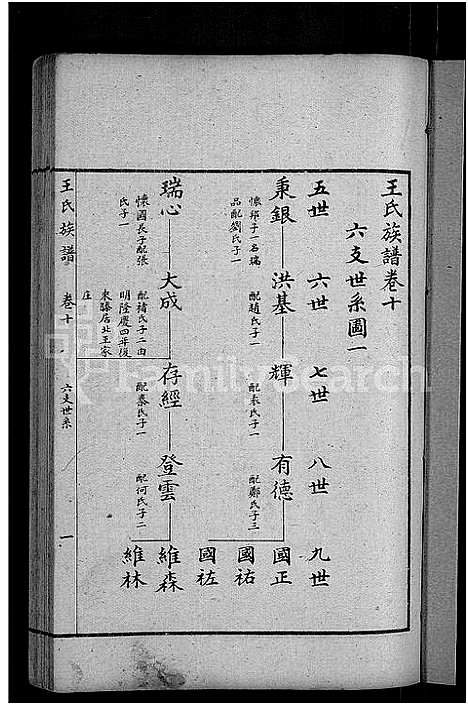 王氏族譜卷十
六支世系圖一
五世 六世 七世 八世 九世
秉銀 洪基 輝 有德 國正
國祐
國祜
懷邦子一名瑞
品配劉氏子一
配趙氏子一
配袁氏子一
配鄭氏子三
瑞心 大成 存經 登雲 維森
維林
懷國長子配張
氏子一
配褚氏子二由
明隆慶四年復
東滕居北王家
庄
配秦氏子一
配何氏子二
王氏族譜 卷十 六支世系 一
FamilySearch